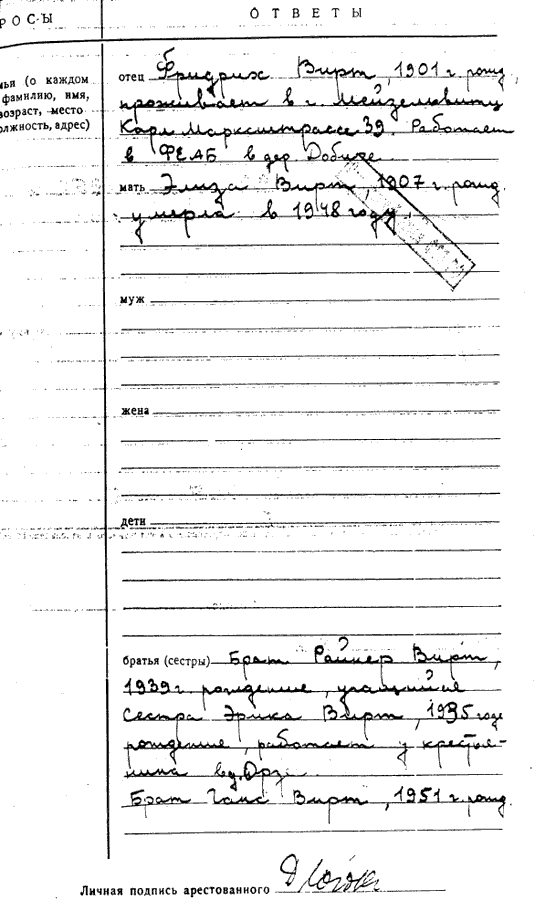 РОСЫ
ОТВЕТЫ
мьи (о каждом
фамилию, имя,
возраст, место
олжность, адрес)
отец Фридрих Вирт, 1901 г. рожд.
проживает в г.
Карл Марксштрассе 39. Работает
в дер.
мать Элиза Вирт, 1907 г. рожд.
умерла в 1948 году.
муж
жена
дети
братья (сестры) Брат Райнер Вирт,
1939 г. рождение, учащийся
Сестра Эрика Вирт, 1935 годе
рождение, работает у крестья-
нина
Брат Ганс Вирт, 1951 г. рожд.
Личная подпись арестованного